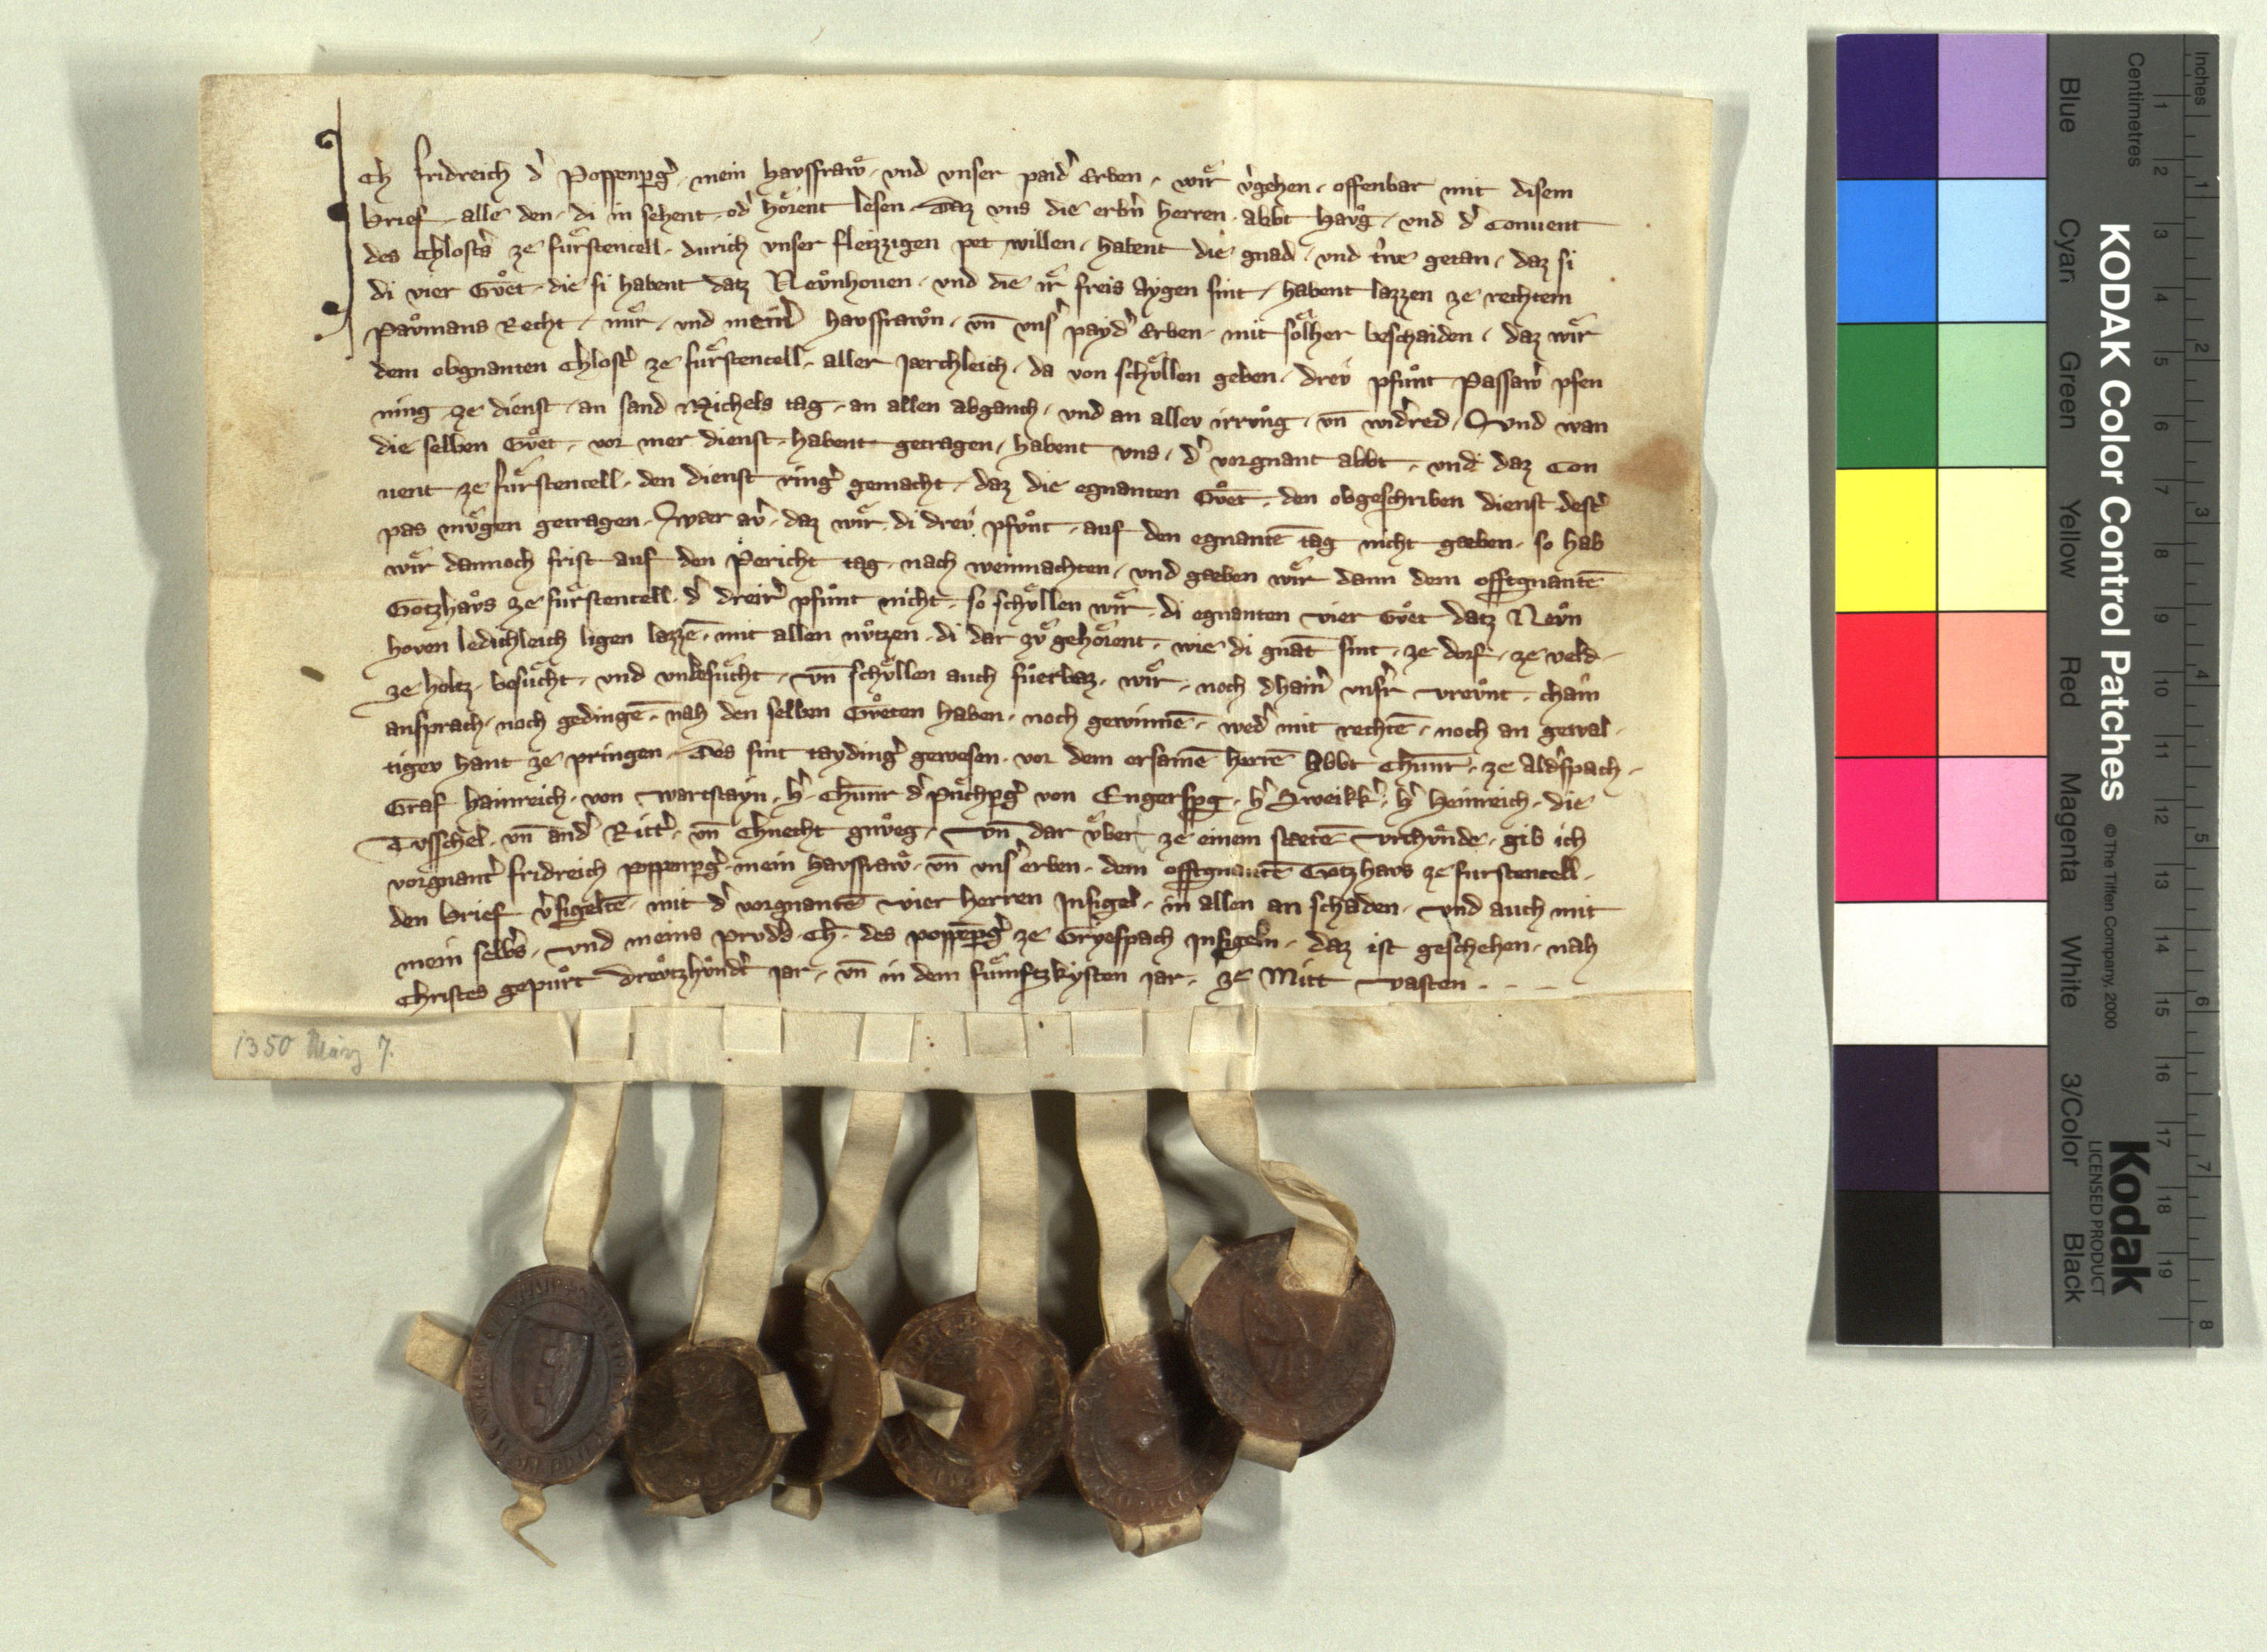 Ich fridreich d̾ Poppenpg̾ · mein havsfrawͦ · vnd vnser paid̾ Erben · wiͤr v̾gehen · offenbar mit disem
brief · alle den · di in sehent · od̾ hoͤrent lesen · Daz vns die erbn̾ herren · abbt Havͦg · vnd d̾ Conuent
des Chlost̾s ze fuͤrstencell · durich vnser fleizzigen pet willen · habent die gnad · vnd tr̾we getan · daz si
di vier Gvͤet · die si habent datz Nevͦnhouen · vnd die iͤr freis Aygen sint · habent lazzen ze rechtem
pavͦmans Recht · miͤr · vnd mein̾ havsfrawͦn · vn̄ vns̾ payd̾ Erben · mit soͤlher beschaiden · daz wiͤr
dem obgnanten Chlost̾ ze fuͤrstencell · aller jaerchleich · da von schvͤllen geben · drev pfuͦnt Passaw̾ pfen
ning ze dienst · an sand Michels tag · an allen abganch · vnd an allev irrvͦng · vn̄ wid̾red · Vnd wan
die selben Gvͤet · vor mer dienst · habent getragen · habent vns · d̾ vorgnant abbt · vnd daz Con
uent ze fuͤrstencell · den dienst ring̾ gemacht · daz die egnanten Gvͤet · den obgeschriben dienst dest̾
pas mvͤgen getragen · Swaer av̾ · daz wiͤr di drev pfvͦnt · auf den egnantē tag nicht gaeben · so hab
wiͤr dannoch frist auf den Pericht tag · nach weinnachten · vnd gaeben wiͤr dann dem offtgnantē
Gotzhavͦs ze fuͤrstencell · d̾ dreir̾ pfuͦnt nicht · so schvͤllen wiͤr di egnanten vier Gvͤet datz Nevͦn
hoven ledichleich ligen lazzē · mit allen nvͤtzen · di dar zvͤ gehoͤrent · wie di gnāt sint · ze dorf · ze veld ·
ze holtz · besuͤcht · vnd vnbesuͤcht · vn̄ schvͤllen auch fuͤrbaz · wiͤr · noch dhain̾ vnsr̾ vrevͦnt · chain
ansprach · noch gedingē · nah den selben Gvͤeten haben · noch gewinnē · wed̾ mit rechtē · noch an gewal ·
tiger hant ze pringen · Des sint tayding̾ gewesen · vor dem ersamē herrē Abbt Chunr̄ · ze Ald̾spach ·
Graf Hainreich · von Wartstayn · h̾ · Chunr̄ d̾ Puͤchpg̾ von Engerspg · h̾ Sweikk̾ · h̾ Heinreich · die
Tvsschel · vn̄ and̾ Ritt̾ · vn̄ Chnecht gnvͦeg · Vn̄ dar vͤber ze einem staetē vrchvͤnde · gib ich
vorgnant̾ fridreich poppenpg̾ · mein havsfrawͦ · vn̄ vns̾ erben · dem offtgnantē Gotzhavs ze furstencell ·
den brief v̾sigeltē · mit d̾ vorgnantē vier herren Insigel · in allen an schaden · vnd auch mit
mein selb̾s · vnd meins prvd̾s · Ch̄ · des poppēpg̾ ze Gryespach Insigeln · daz ist geschehen · nah
Christes gepuͤrt drevͦtzhvͦnd̾t jar · vn̄ in dem fuͤmftzkysten jar · ze Mitt vasten
1350 März 7.
Inches
Centimetres
KODAK Color Control Patches
© The Tiffen Company, 2000
Kodak
LICENSED PRODUCT
Blue Cyan Green Yellow Red Magenta White 3/Color Black
1 2 3 4 5 6 7 8
1 2 3 4 5 6 7 8 9 10 11 12 13 14 15 16 17 18 19